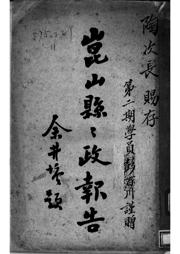 陶次長 賜存
第二期學員彭濟川謹贈
崑山縣縣政報告
余井塘題